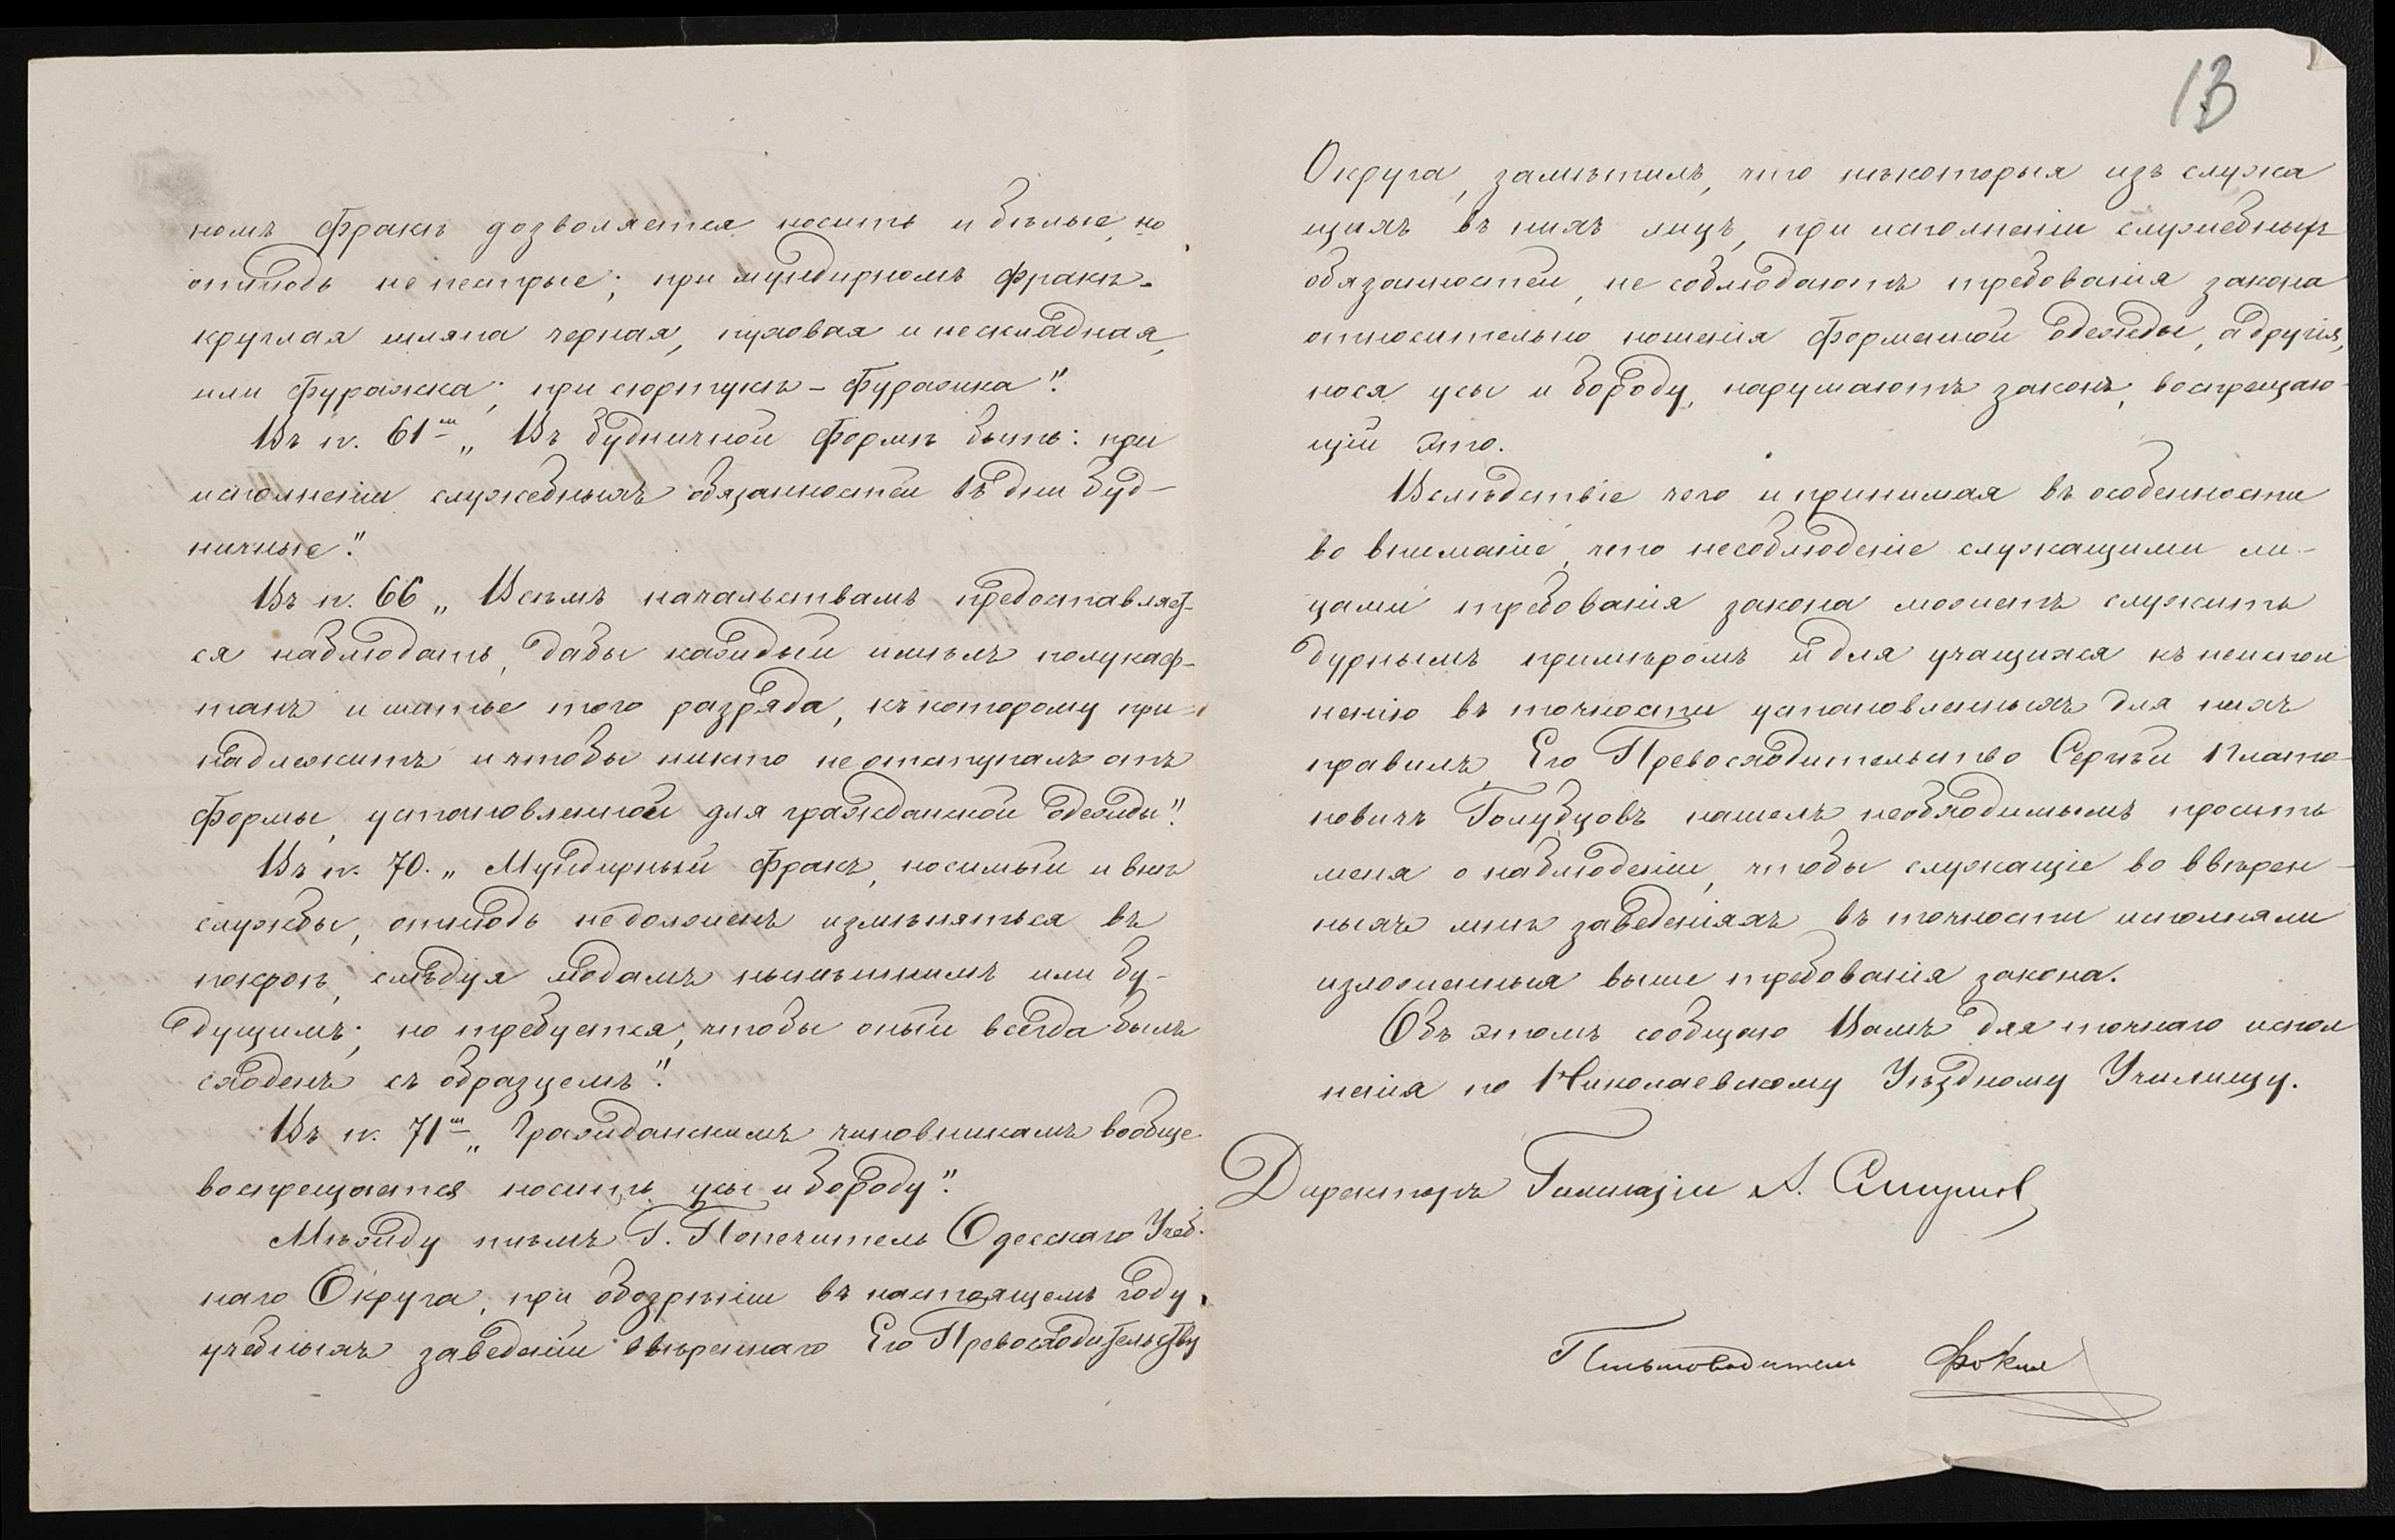 номъ фракѣ дозволяется носить и бѣлые, но
отнюдь не пестрые; при мундирномъ фракѣ-
круглая шляпа черная, пуховая и нескладная,
или фуражка; при сюртукѣ - фуражка".
Въ п. 61м „Въ будничной формѣ быть: при
исполненіи служебныхъ обязанностей въ дни буд-
ничные".
Въ п. 66 „Всѣмъ начальствамъ предоставляет-
ся наблюдать, дабы каждый имѣлъ полукаф-
танъ и шитье того разряда, къ которому при-
надлежитъ и чтобы никто не отступалъ отъ
формы, установленной для гражданской одежды".
Въ п. 70. „Мундирный фракъ, носимый и внѣ
службы, отнюдь не долженъ измѣняться въ
покроѣ, слѣдуя модамъ нынѣшнимъ или бу-
дущимъ; но требуется, чтобы оный всегда былъ
сходенъ съ образцемъ".
Въ п. 71м „Гражданскимъ чиновникамъ вообще
воспрещается носить усы и бороду".
Мѣжду тѣмъ Г. Попечитель Одесскаго Учеб-
наго Округа, при обозрѣніи въ настоящемъ году
учебныхъ заведеній ввѣреннаго Его Превосходительству
13
Округа, замѣтилъ, что нѣкоторыя изъ служа
щихъ въ нихъ лицъ, при исполненіи служебныхъ
обязанностей, не соблюдаютъ требованія закона
относительно ношенія форменной одежды, а другія,
нося усы и бороду, нарушаютъ законъ, воспрещаю-
щій это.
Вслѣдствіе чего и принимая въ особенности
во вниманіе, что несоблюденіе служащими ли-
цами требованія закона можетъ служить
дурнымъ примѣромъ и для учащихся къ неиспол
ненію въ точности установленныхъ для нихъ
правилъ, Его Превосходительство Сергѣй Плато-
новичъ Голубцовъ нашелъ необходимымъ просить
меня о наблюденіи, чтобы служащіе во ввѣрен-
ныхъ мнѣ заведеніяхъ въ точности исполняли
изложенныя выше требованія закона.
Объ этомъ сообщаю Вамъ для точнаго испол
ненія по Николаевскому Уѣздному Училищу.
Директоръ Гимназіи А.
Письмоводитель